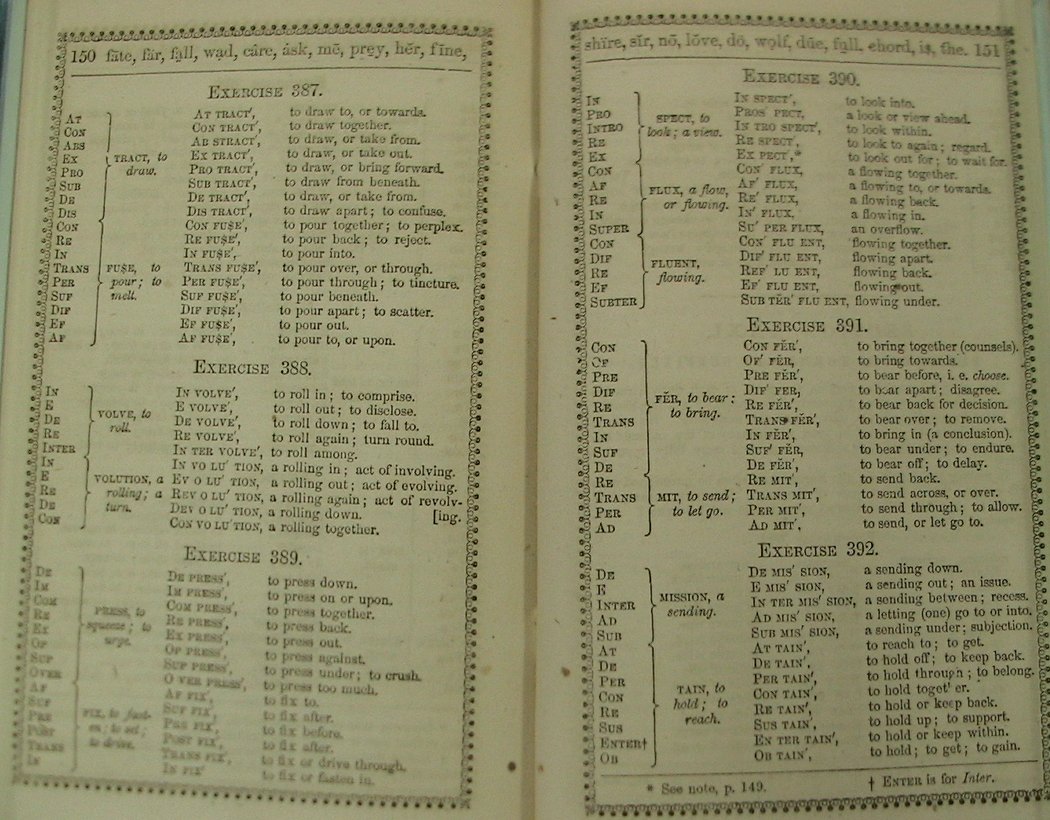 150 fāte, fär, fa̤ll, wa̤d, câre, ȧsk, mē, prey, hẽr, fīne,
EXERCISE 387.
AT AT TRACT′, to draw to, or towards.
CON CON TRACT′, to draw together.
ABS AB STRACT′, to draw, or take from.
EX TRACT, to EX TRACT′, to draw, or take out.
PRO draw. PRO TRACT′, to draw, or bring forward.
SUB SUB TRACT′, to draw from beneath.
DE DE TRACT′, to draw, or take from.
DIS DIS TRACT′, to draw apart; to confuse.
CON CON FUSE′, to pour together; to perplex.
RE RE FUSE′, to pour back; to reject.
IN IN FUSE′, to pour into.
TRANS FUSE, to TRANS FUSE′, to pour over, or through.
PER pour; to PER FUSE′, to pour through; to tincture.
SUF melt. SUF FUSE′, to pour beneath.
DIF DIF FUSE′, to pour apart; to scatter.
EF EF FUSE′, to pour out.
AF AF FUSE′, to pour to, or upon.
EXERCISE 388.
IN IN VOLVE′, to roll in; to comprise.
E VOLVE, to E VOLVE′, to roll out; to disclose.
DE roll. DE VOLVE′, to roll down; to fall to.
RE RE VOLVE′, to roll again; turn round.
INTER IN TER VOLVE′, to roll among.
IN IN VO LU′ TION, a rolling in; act of involving.
E VOLUTION, a EV O LU′ TION, a rolling out; act of evolving.
RE rolling; a REV O LU′ TION, a rolling again; act of revolv-
DE turn. DEV O LU′ TION, a rolling down. [ing.
CON CON VO LU′ TION, a rolling together.
EXERCISE 389.
DE DE PRESS′, to press down.
IM IM PRESS′, to press on or upon.
COM COM PRESS′, to press together.
RE PRESS, to RE PRESS′, to press back.
EX squeeze; to EX PRESS′, to press out.
OP urge. OP PRESS′, to press against.
SUP SUP PRESS′, to press under; to crush.
OVER O VER PRESS′, to press too much.
AF AF FIX′, to fix to.
SUF SUF FIX′, to fix after.
PRE FIX, to fast- PRE FIX′, to fix before.
POST en; to set; POST FIX′, to fix after.
TRANS to drive. TRANS FIX′, to fix or drive through.
IN IN FIX′ to fix or fasten in.
shïre, sïr, nō, lóve, dö, wolf, dūe, full, chord, is, the. 151
EXERCISE 390.
IN IN SPECT′, to look into.
PRO SPECT, to PROS′ PECT, a look or view ahead.
INTRO look; a view. IN TRO SPECT′, to look within.
RE RE SPECT′, to look to again; regard.
EX EX PECT′,* to look out for; to wait for.
CON CON′ FLUX, a flowing together.
AF FLUX, a flow, AF′ FLUX, a flowing to, or towards.
RE or flowing. RE′ FLUX, a flowing back.
IN IN′ FLUX, a flowing in.
SUPER SU′ PER FLUX, an overflow.
CON CON′ FLU ENT, flowing together.
DIF FLUENT, DIF′ FLU ENT, flowing apart.
RE flowing. REF′ LU ENT, flowing back.
EF EF′ FLU ENT, flowing out.
SUBTER SUB TĔR′ FLU ENT, flowing under.
EXERCISE 391.
CON CON FĔR′, to bring together (counsels).
OF OF′ FĔR, to bring towards.
PRE PRE FĔR′, to bear before, i. e. choose.
DIF DIF′ FER, to bear apart; disagree.
RE FĔR, to bear; RE FĔR′, to bear back for decision.
TRANS to bring. TRANS FĔR′, to bear over; to remove.
IN IN FĔR′, to bring in (a conclusion).
SUF SUF′ FĔR, to bear under; to endure.
DE DE FĔR′, to bear off; to delay.
RE RE MIT′, to send back.
TRANS MIT, to send; TRANS MIT′, to send across, or over.
PER to let go. PER MIT′, to send through; to allow.
AD AD MIT′, to send, or let go to.
EXERCISE 392.
DE DE MIS′ SION, a sending down.
E MISSION, a E MIS′ SION, a sending out; an issue.
INTER sending. IN TER MIS′ SION, a sending between; recess.
AD AD MIS′ SION, a letting (one) go to or into.
SUB SUB MIS′ SION, a sending under; subjection.
AT AT TAIN′, to reach to; to get.
DE DE TAIN′, to hold off; to keep back.
PER PER TAIN′, to hold through; to belong.
CON TAIN, to CON TAIN′, to hold together.
RE hold; to RE TAIN′, to hold or keep back.
SUS reach. SUS TAIN′, to hold up; to support.
ENTER† EN TER TAIN′, to hold or keep within.
OB OB TAIN′, to hold; to get; to gain.
* See note, p. 149. † ENTER is for Inter.